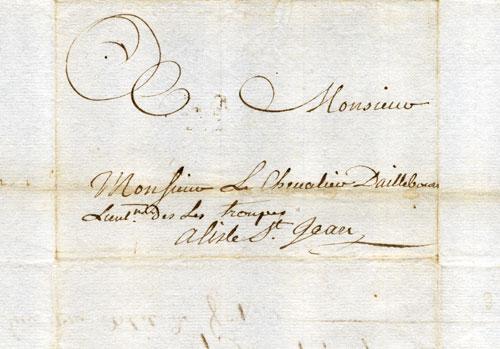 Monsieur
Monsieur Le Chevalier Dailleboust
Lieut.nt des Les troupes
a lisle St. Jean